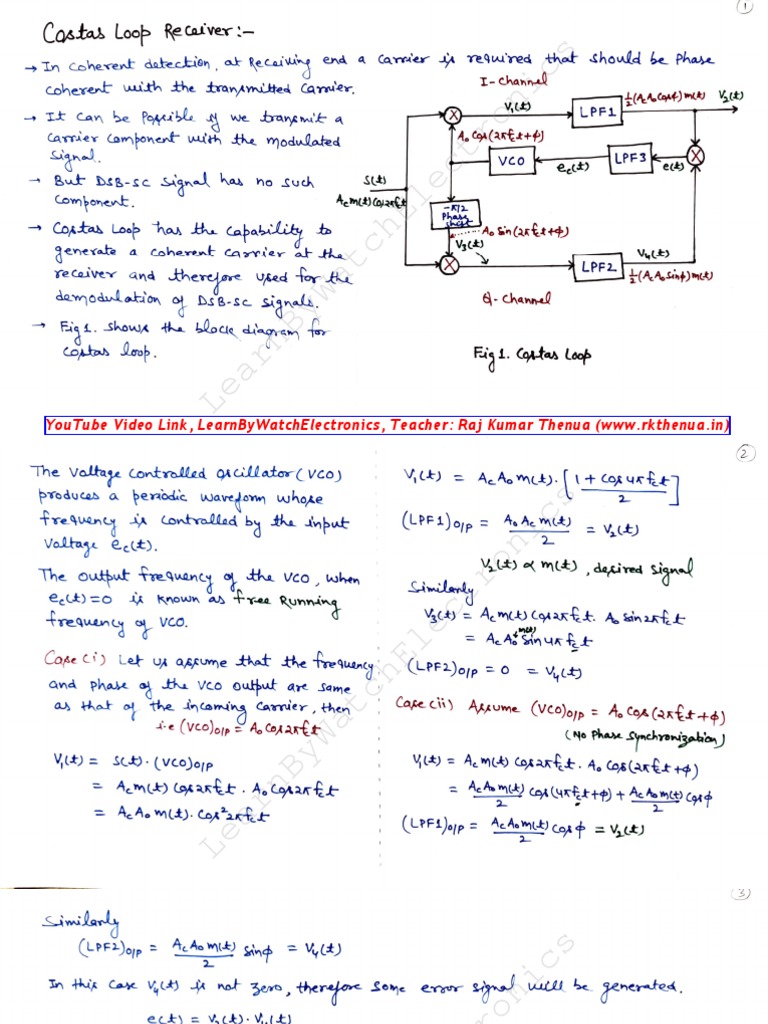 1
Costas Loop Receiver:-
→ In coherent detection, at Receiving end a carrier is required that should be Phase
coherent with the transmitted carrier.
→ It can be possible if we transmit a
carrier component with the modulated
signal.
→ But DSB-SC signal has no such
component.
→ Costas Loop has the capability to
generate a coherent carrier at the
receiver and therefore used for the
demodulation of DSB-SC signals.
→ Fig 1. shows the block diagram for
costas loop.
I-channel
V₁(t)
LPF1
½(AcA₀cosϕ)m(t)
V₂(t)
A₀ cos(2πfct+ϕ)
VCO
ec(t)
LPF3
e(t)
S(t)
Acm(t)cos2πfct
-π/2
Phase
shift
A₀ Sin(2πfct+ϕ)
V₃(t)
LPF2
V₄(t)
½(AcA₀sinϕ)m(t)
Q-channel
Fig 1. Costas Loop
LearnByWatchElectronics
YouTube Video Link, LearnByWatchElectronics, Teacher: Raj Kumar Thenua (www.rkthenua.in)
2
The voltage controlled oscillator (VCO)
produces a periodic waveform whose
frequency is controlled by the input
voltage ec(t).
The output frequency of the VCO, when
ec(t)=0 is known as free Running
frequency of VCO.
Case (i) Let us assume that the frequency
and phase of the VCO output are same
as that of the incoming carrier, then
i.e (VCO)O/P = A₀ cos2πfct
V₁(t) = S(t)·(VCO)O/P
= Acm(t) cos2πfct · A₀ cos2πfct
= AcA₀m(t)·cos²2πfct
V₁(t) = AcA₀m(t)·[1+cos4πfct / 2]
(LPF1)O/P = A₀Acm(t)/2 = V₂(t)
V₂(t) ∝ m(t), desired signal
Similarly
V₃(t) = Acm(t) cos2πfct. A₀ sin2πfct
= AcA₀ m(t) sin4πfct
(LPF2)O/P = 0 = V₄(t)
Case (ii) Assume (VCO)O/P = A₀ cos(2πfct+ϕ)
(No Phase Synchronization)
V₁(t) = Acm(t) cos2πfct. A₀ cos(2πfct+ϕ)
= AcA₀m(t)/2 cos(4πfct+ϕ) + AcA₀m(t)/2 cosϕ
(LPF1)O/P = AcA₀m(t)/2 cosϕ = V₂(t)
LearnByWatchElectronics
3
Similarly
(LPF2)O/P = AcA₀m(t)/2 sinϕ = V₄(t)
In this case V₄(t) is not zero, therefore some error signal will be generated.
e(t) = V₂(t)·V₄(t)